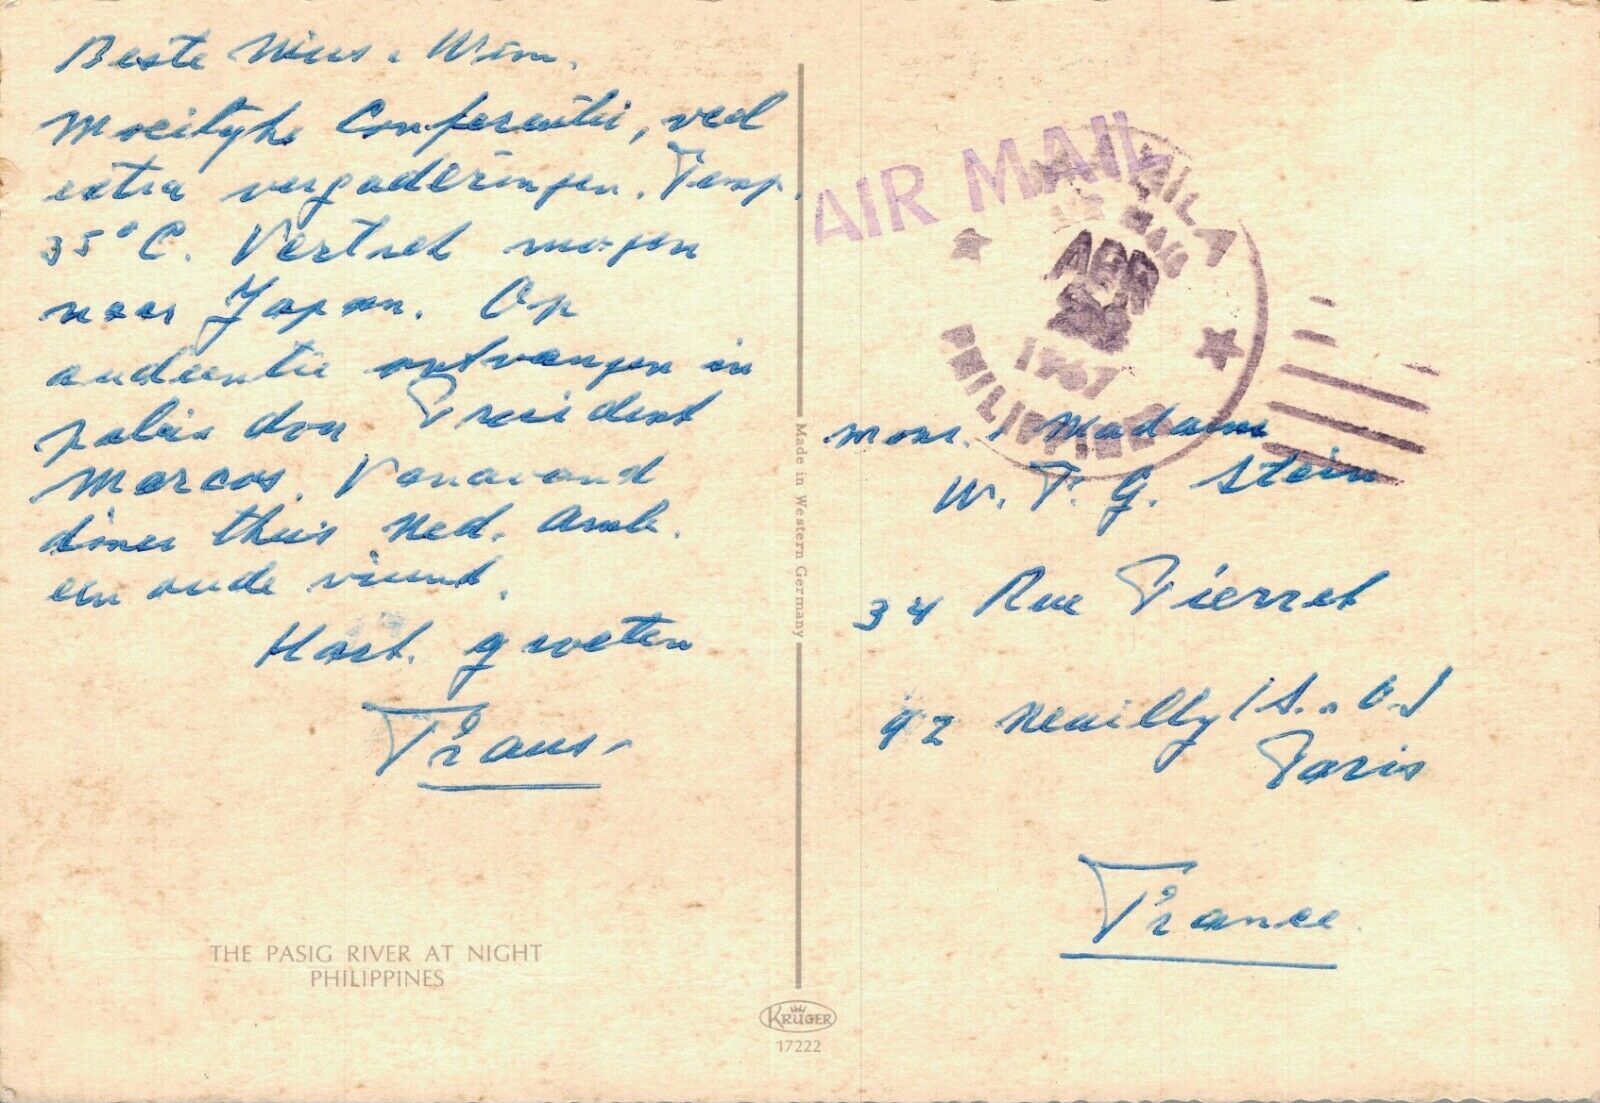 Beste Nius. Wim.
Moeilijke Conferentie, veel
extra vergaderingen. Temp.
35°C. Vertrek morgen
naar Japan. Op
audientie ontvangen in
paleis door President
Marcos. Vanavond
diner thuis Ned. Amb.
een oude vriend.
Hart. groeten
Frans.
THE PASIG RIVER AT NIGHT
PHILIPPINES
Made in Western Germany
KRÜGER
17222
AIR MAIL
MANILA
AIR MAIL
APR
1967
PHILIPPINES
Mons. & Madame
W. F. G. Stein
34 Rue Pierret
92 Neuilly (S. O.)
Paris
France.